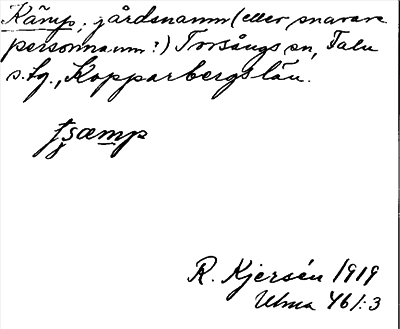 Kämp, gårdsnamn (eller snarare
personnamn?) Torsångs sn, Falu
s. fg., Kopparbergs län.
R. Kjersén 1919
Ulma 46/:3